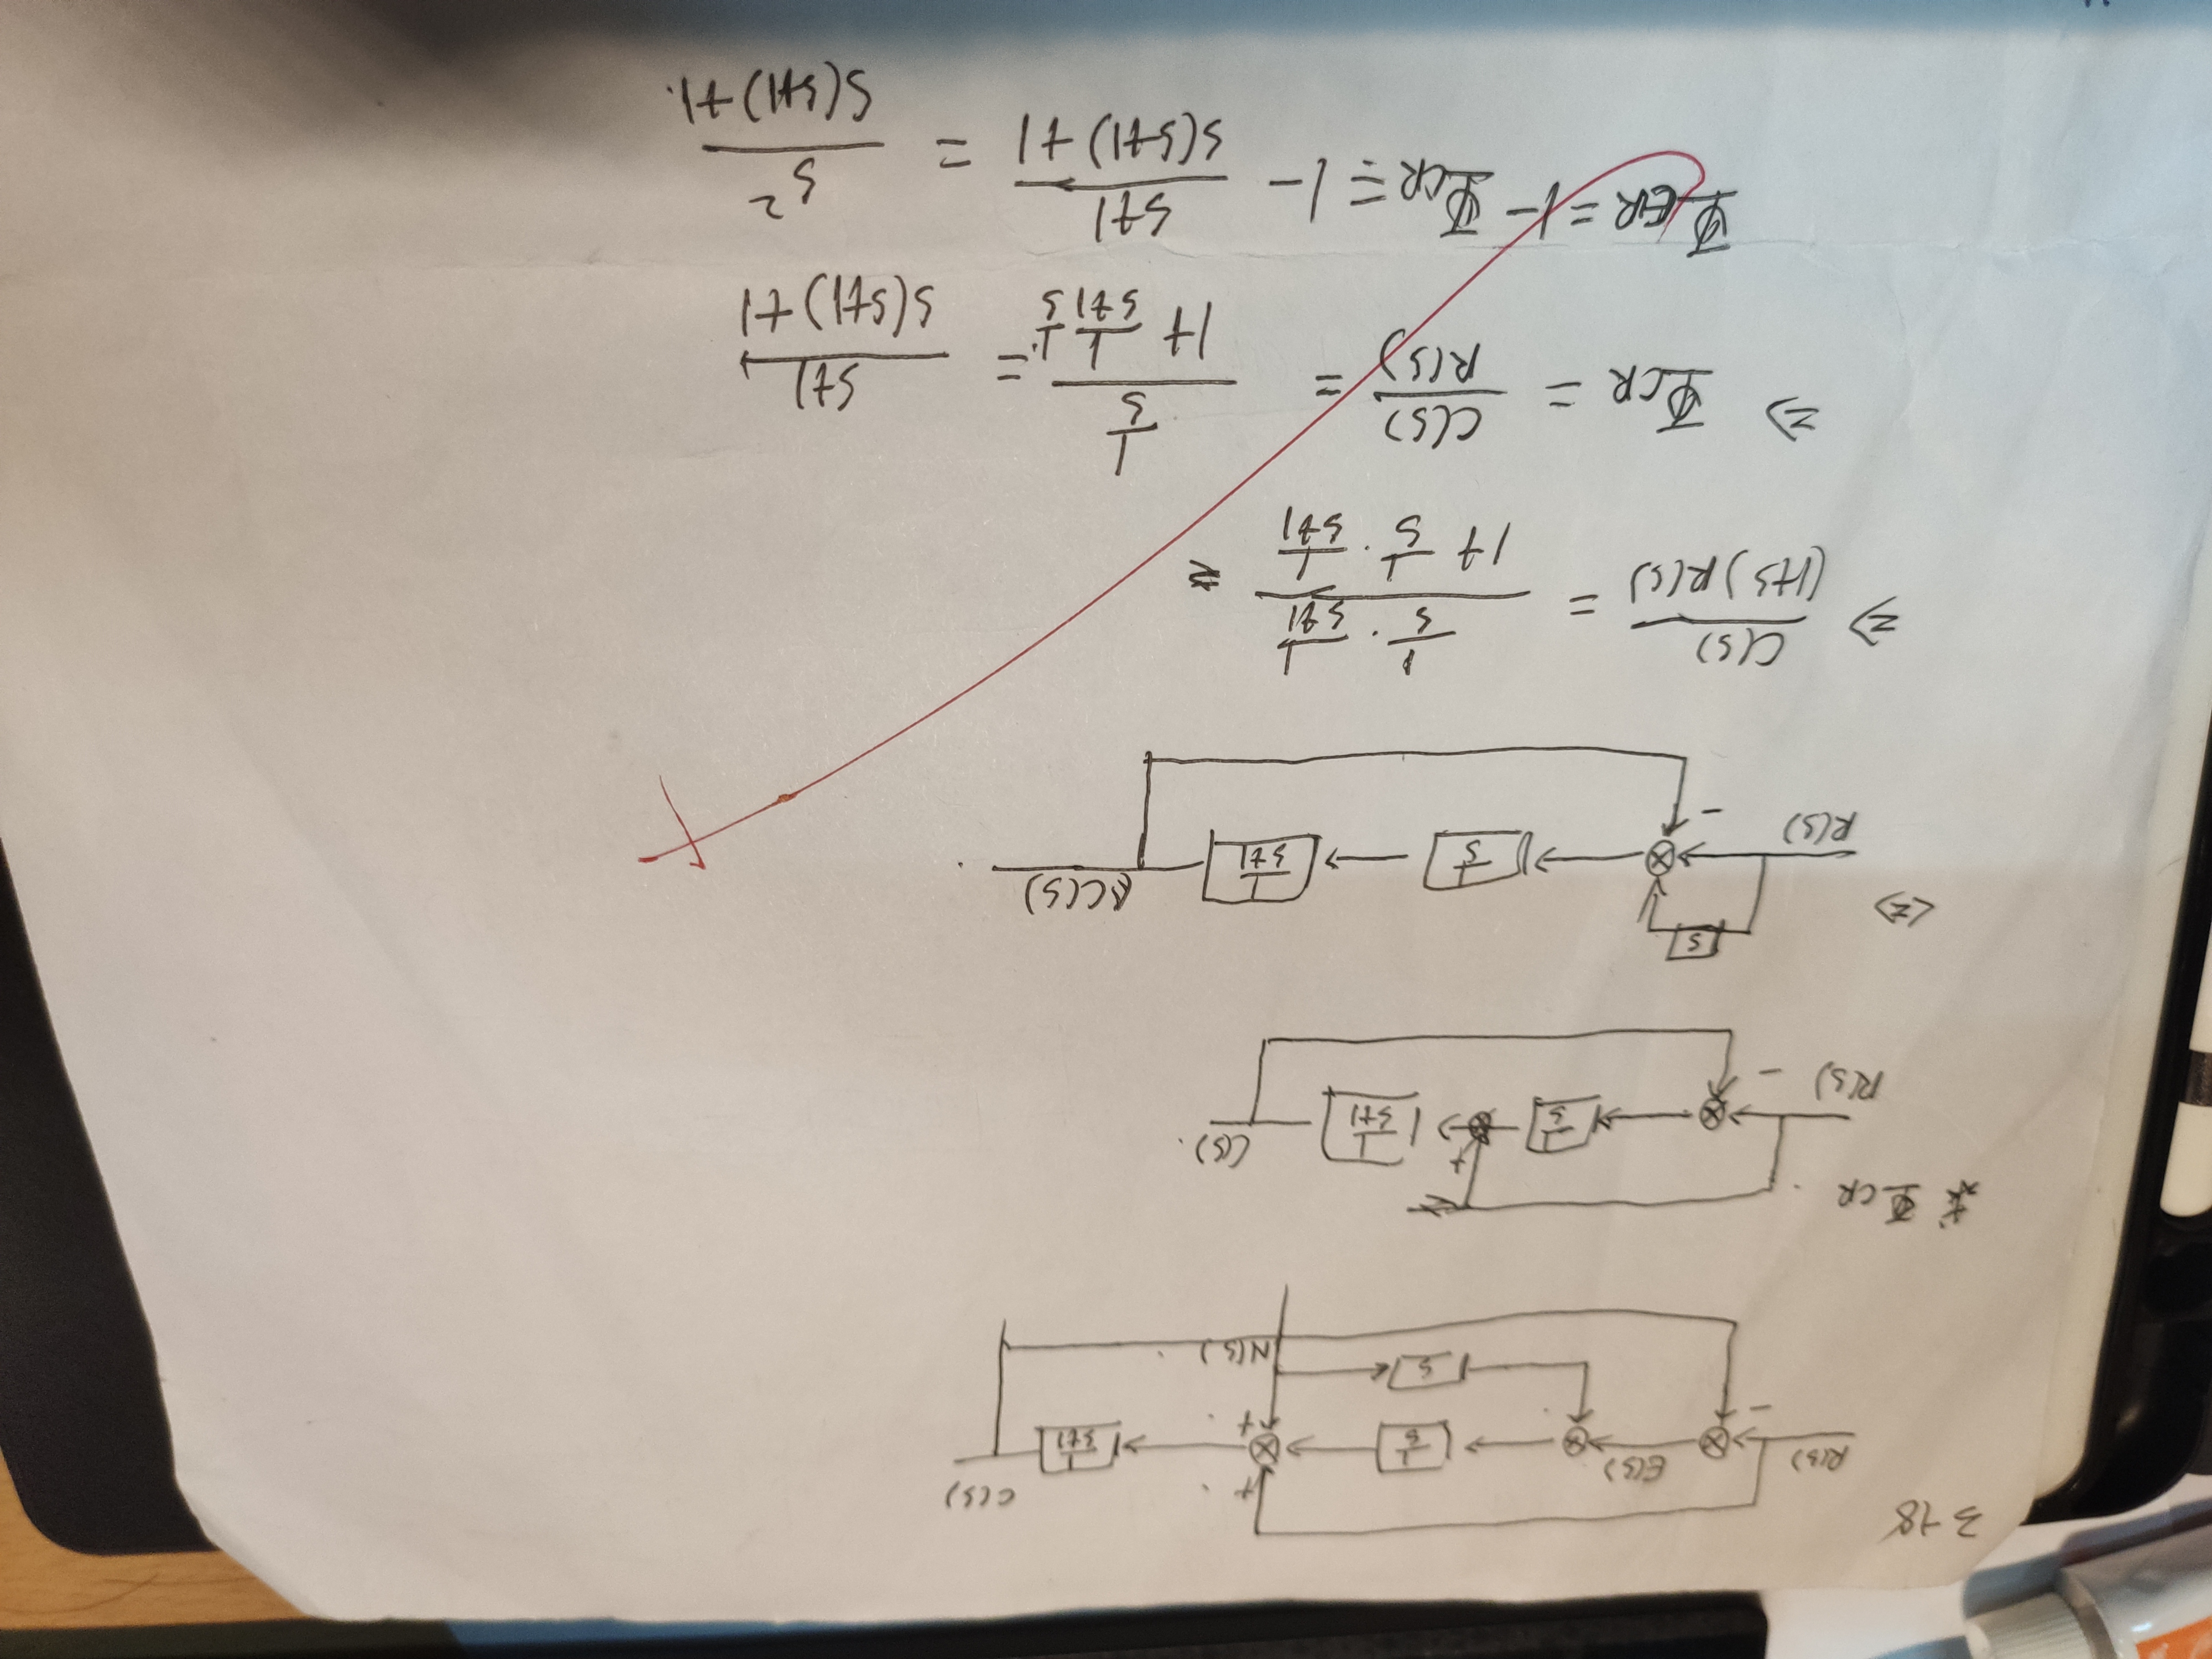 3-18
R(s) E(s) 1/s + + 1/(s+1) C(s)
- s N(s)
求 Φ_CR .
R(s) - 1/s + 1/(s+1) C(s).
<=>
s
R(s) - 1/s 1/(s+1) C(s) .
=> C(s)/((1+s)R(s)) = (1/s · 1/(s+1))/(1+ 1/s · 1/(s+1)) =
=> Φ_CR = C(s)/R(s) = (1/s)/(1+ 1/(s+1) 1/s) = (s+1)/(s(s+1)+1)
Φ_ER = 1- Φ_CR = 1- (s+1)/(s(s+1)+1) = s²/(s(s+1)+1.)